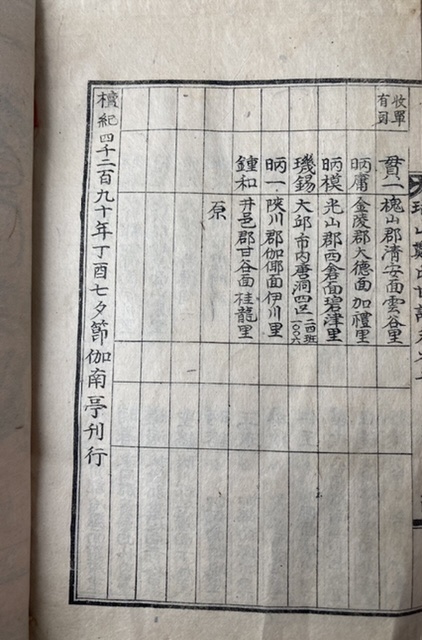 收單
有司
貫一 槐山郡清安面雲谷里
昞庸 金陵郡大德面加禮里
昞模 光山郡西倉面碧津里
璣錫 大邱市內唐洞四区二四班一〇〇六
昞一 陜川郡伽倻面伊川里
鍾和 井邑郡甘谷面桂龍里
原
檀紀四千二百九十年丁酉七夕節伽南亭刊行